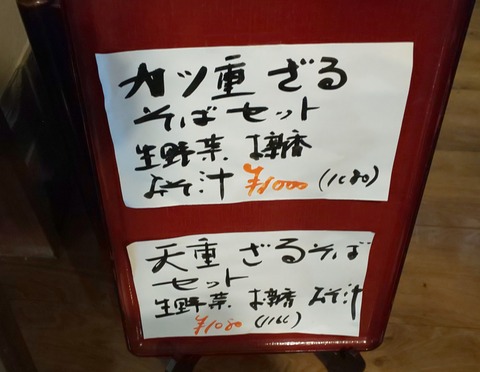 カツ重 ざる
そばセット
生野菜 お新香
みそ汁 ¥1000 (1080)
天重 ざるそば
セット
生野菜 お新香 みそ汁
¥1080 (1166)